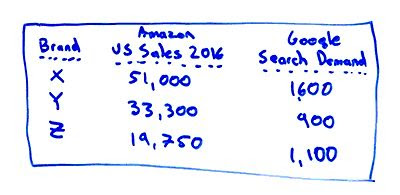 Brand Amazon US Sales 2016 Google Search Demand
X 51,000 1,600
Y 33,300 900
Z 19,750 1,100